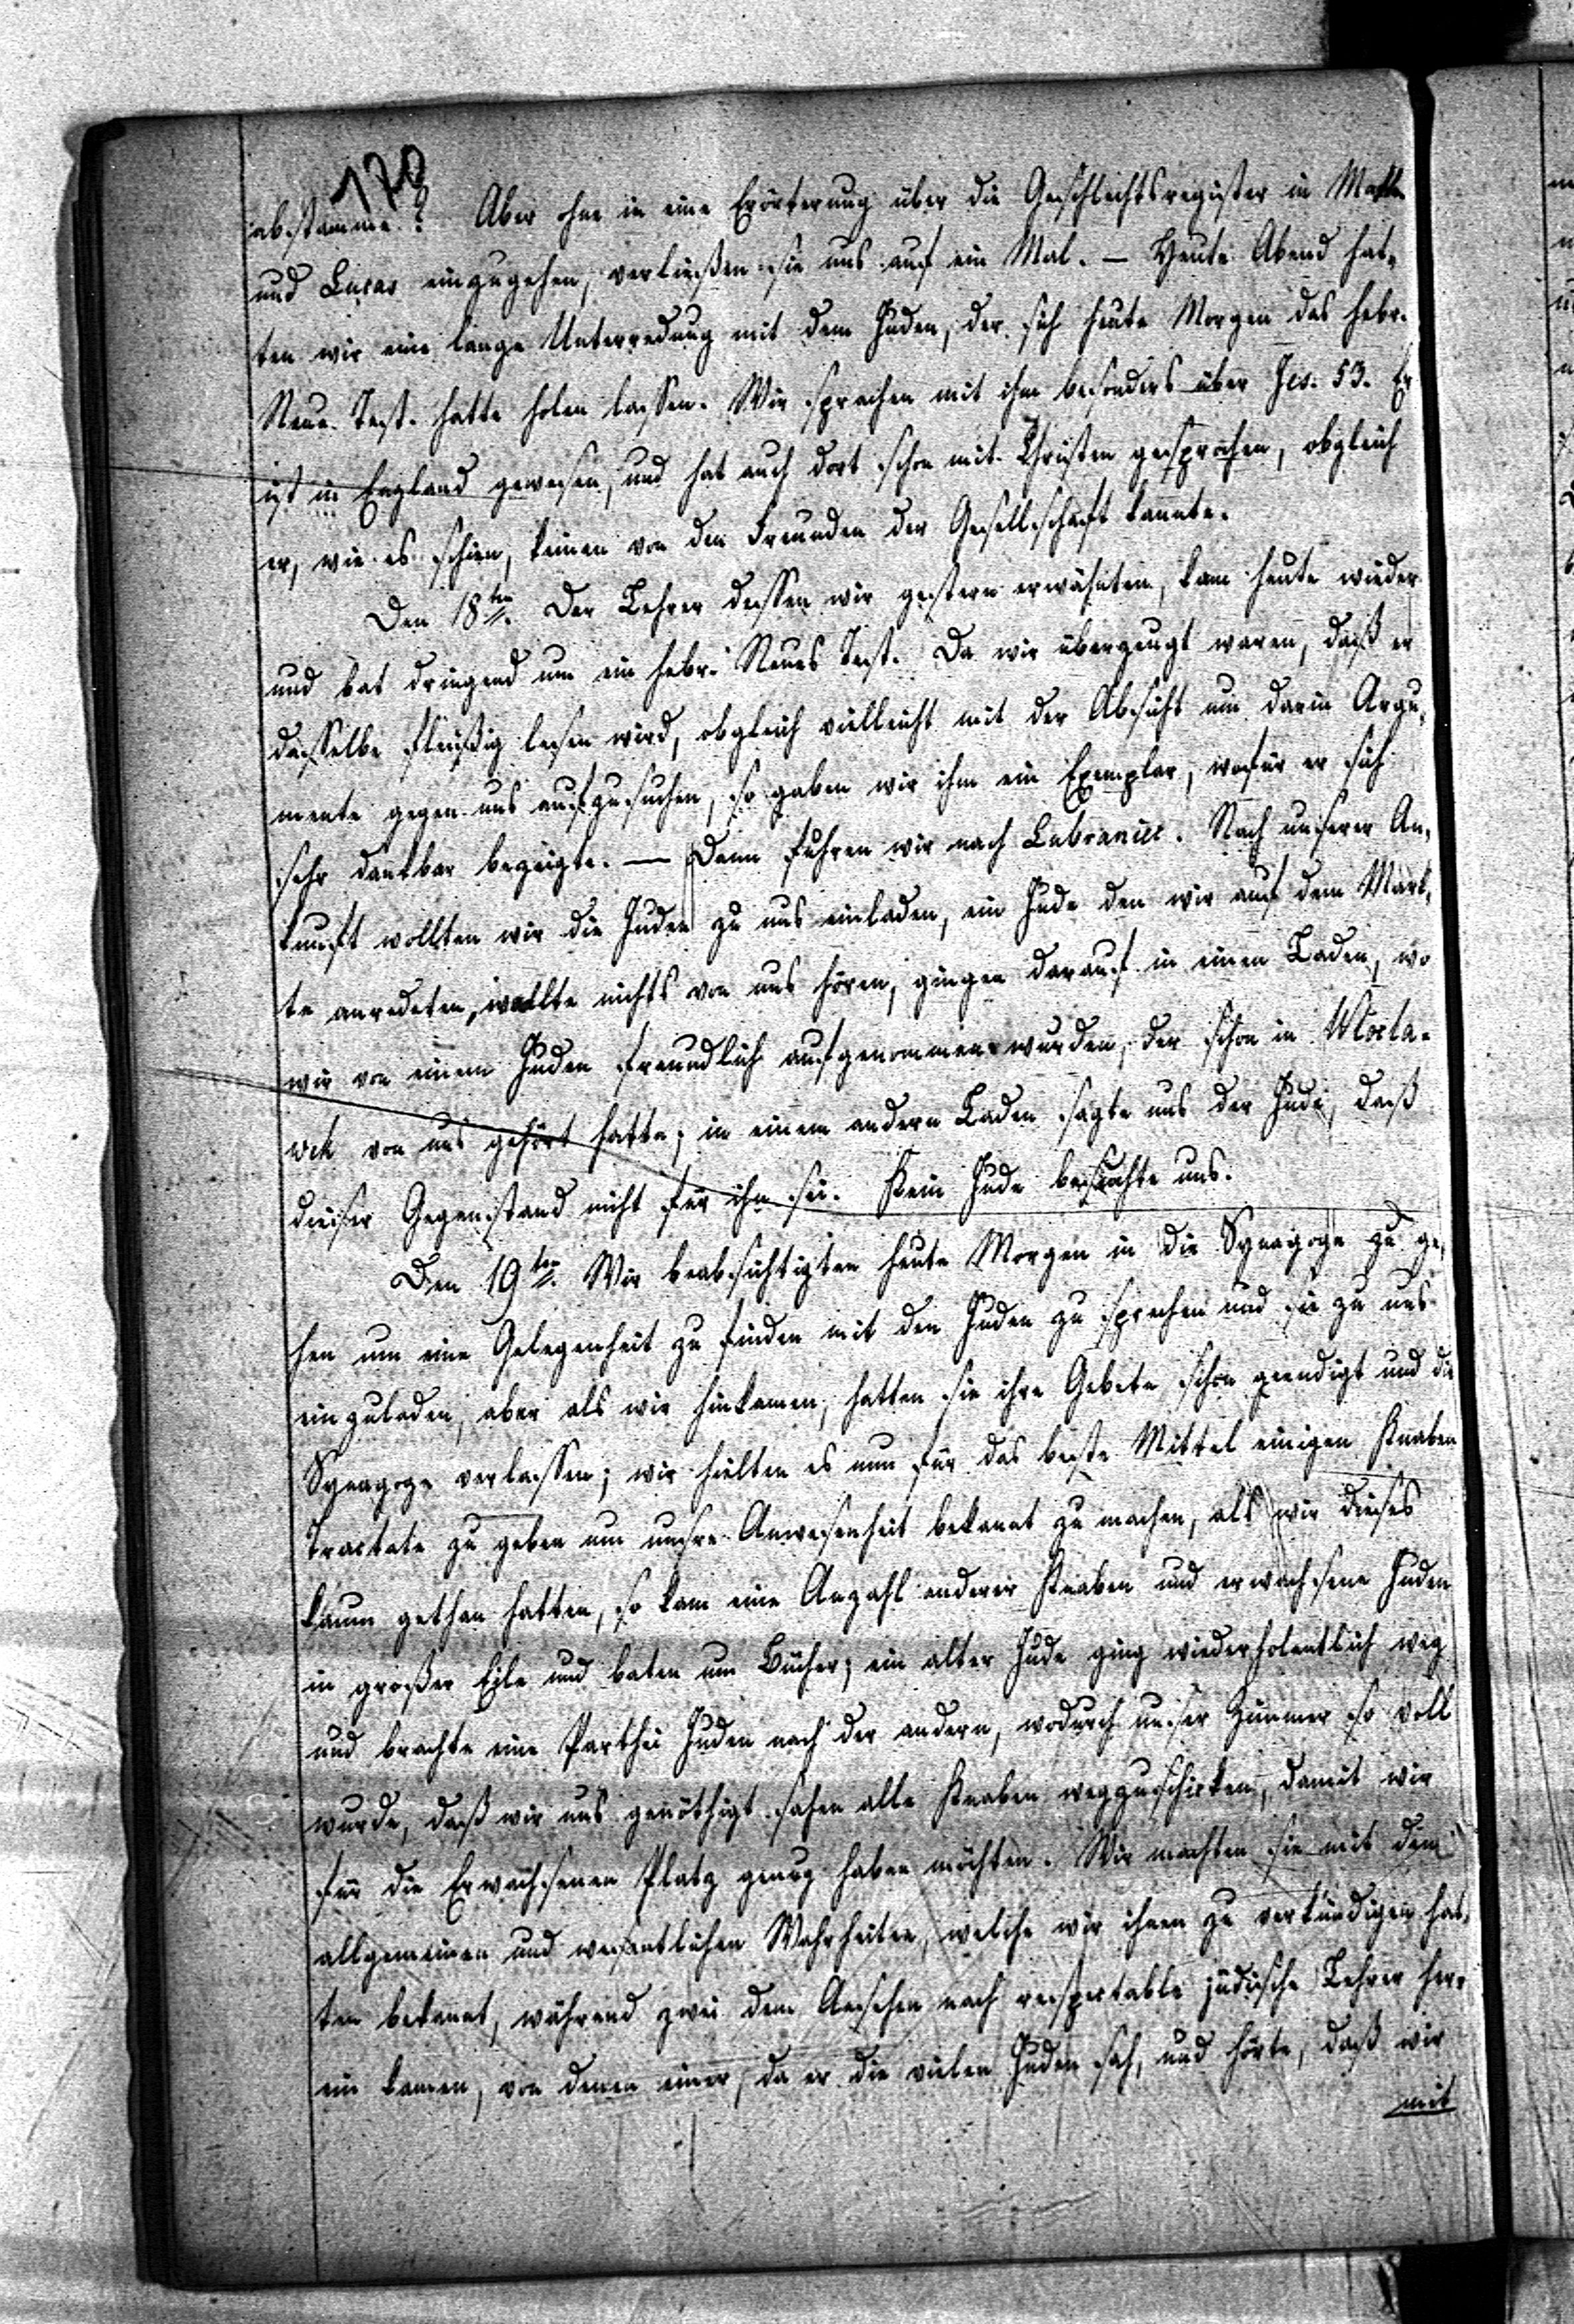 170
abstamme? Aber ohne in eine Erörterung über die Geschlechtsregister in Matth.
und Lucas einzugehen, verließen sie uns auf ein Mal. — Heute Abend hat-
ten wir eine lange Unterredung mit dem Juden, der sich heute Morgen das hebr.
Neue Test. hatte holen lassen. Wir sprachen mit ihm besonders über Jes. 53. Er
ist in England gewesen, und hat auch dort schon mit Christen gesprochen, obgleich
er, wie es schien, keinen von den Freunden der Gesellschaft kannte.
Den 18ten. Der Lehrer dessen wir gestern erwähnten, kam heute wieder
und bat dringend um ein hebr. Neues Test. Da wir überzeugt waren, daß er
dasselbe fleißig lesen wird, obgleich vielleicht mit der Absicht um darin Argu-
mente gegen uns aufzusuchen, so gaben wir ihm ein Exemplar, wofür er sich
sehr dankbar bezeigte. — Dann fuhren wir nach Lubraniec. Nach unserer An-
kunft wollten wir die Juden zu uns einladen, ein Jude den wir auf dem Mark-
te anredeten, wollte nichts von uns hören, gingen darauf in einen Laden, wo
wir von einem Juden freundlich aufgenommen wurden, der schon in Wlocla-
wek von uns gehört hatte; in einem andern Laden sagte uns der Jude, daß
dieser Gegenstand nicht für ihn sei. Kein Jude besuchte uns.
Den 19ten. Wir beabsichtigten heute Morgen in die Synagoge zu ge-
hen um eine Gelegenheit zu finden mit den Juden zu sprechen und sie zu uns
einzuladen, aber als wir hinkamen, hatten sie ihre Gebete schon geendigt und die
Synagoge verlassen; wir hielten es nun für das beste Mittel einigen Knaben
Tractate zu geben um unsre Anwesenheit bekannt zu machen, als wir dieses
kaum gethan hatten, so kam eine Anzahl anderer Knaben und erwachsene Juden
in großer Eile und baten um Bücher; ein alter Jude ging wiederholentlich weg
und brachte eine Parthei Juden nach der andern, wodurch unser Zimmer so voll
wurde, daß wir uns genöthigt sahen alle Knaben wegzuschicken, damit wir
für die Erwachsenen Platz genug haben möchten. Wir machten sie mit den
allgemeinen und wesentlichen Wahrheiten, welche wir ihnen zu verkündigen hat-
ten bekannt, während zwei dem Ansehen nach respectable jüdische Lehrer her-
ein kamen, von denen einer, da er die vielen Juden sah, und hörte, daß wir
mit